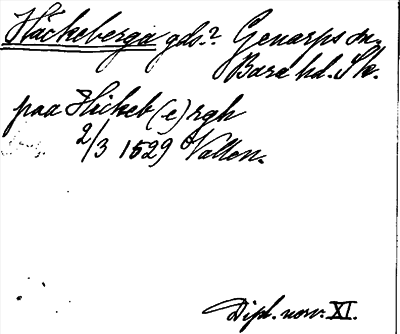 Häckeberga gds.? Genarps sn.
Bara hd. Sk.
paa Hickeb(e)rgh
2/3 1529 Vallen.
Dipl. norv. XI.